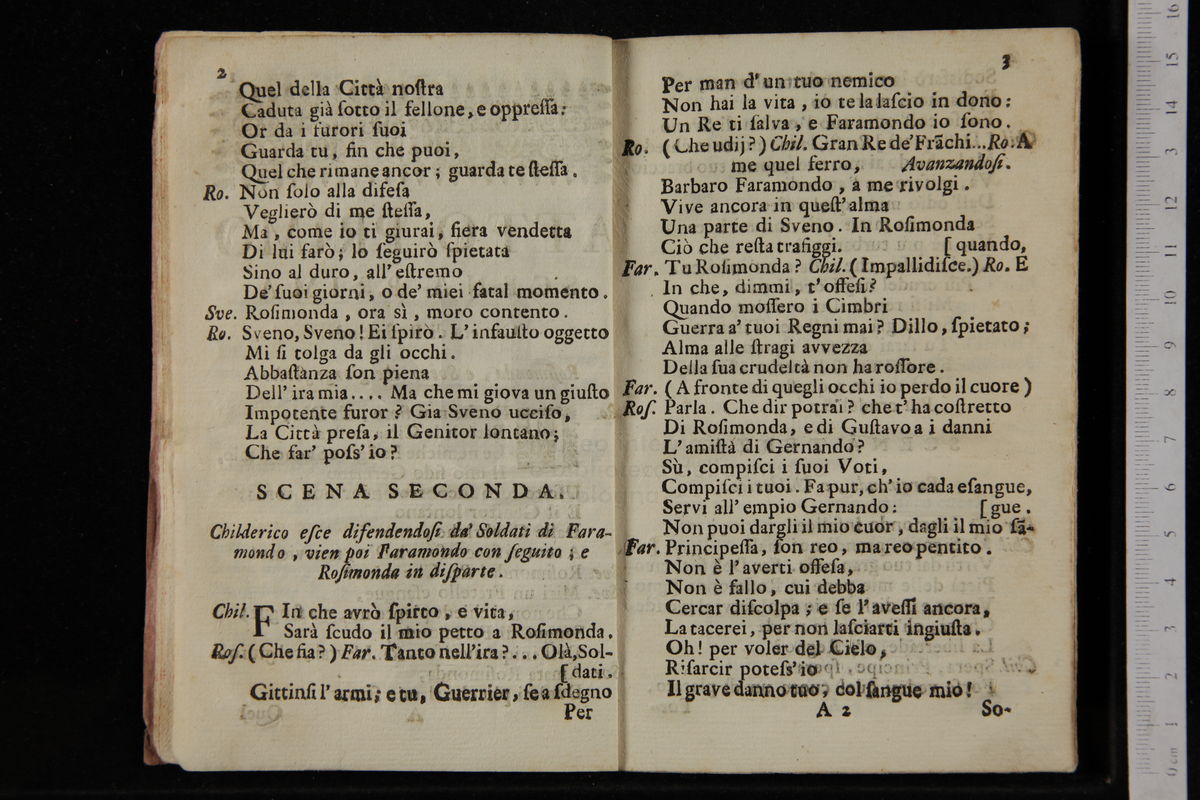 2
Quel della Città noſtra
Caduta già ſotto il fellone, e oppreſſa:
Or da i furori ſuoi
Guarda tu, fin che puoi,
Quel che rimane ancor; guarda te ſteſſa.
Ro. Non ſolo alla difeſa
Veglierò di me ſteſſa,
Ma, come io ti giurai, fiera vendetta
Di lui farò; lo ſeguirò ſpietata
Sino al duro, all' eſtremo
De' ſuoi giorni, o de' miei fatal momento.
Sve. Roſimonda, ora sì, moro contento.
Ro. Sveno, Sveno! Ei ſpirò. L' infauſto oggetto
Mi ſi tolga da gli occhi.
Abbaſtanza ſon piena
Dell' ira mia.... Ma che mi giova un giuſto
Impotente furor? Gia Sveno ucciſo,
La Città preſa, il Genitor lontano;
Che far' poſs' io?
SCENA SECONDA.
Childerico eſce difendendoſi da' Soldati di Fara-
mondo, vien poi Faramondo con ſeguito; e
Roſimonda in diſparte.
Chil. FIn che avrò ſpirto, e vita,
Sarà ſcudo il mio petto a Roſimonda.
Roſ. (Che fia?) Far. Tanto nell'ira?... Olà, Sol-
[dati.
Gittinſi l' armi; e tu, Guerrier, ſe a ſdegno
Per
3
Per man d' un tuo nemico
Non hai la vita, io te la laſcio in dono:
Un Re ti ſalva, e Faramondo io ſono.
Ro. (Che udij?) Chil. Gran Re de' Frãchi... Ro. A
me quel ferro, Avanzandoſi.
Barbaro Faramondo, a me rivolgi.
Vive ancora in queſt' alma
Una parte di Sveno. In Roſimonda
Ciò che reſta trafiggi. [quando,
Far. Tu Roſimonda? Chil. (Impallidiſce.) Ro. E
In che, dimmi, t' offeſi?
Quando moſſero i Cimbri
Guerra a' tuoi Regni mai? Dillo, ſpietato;
Alma alle ſtragi avvezza
Della ſua crudeltà non ha roſſore.
Far. (A fronte di quegli occhi io perdo il cuore)
Roſ. Parla. Che dir potrai? che t' ha coſtretto
Di Roſimonda, e di Guſtavo a i danni
L' amiſtà di Gernando?
Sù, compiſci i ſuoi Voti,
Compiſci i tuoi. Fa pur, ch' io cada eſangue,
Servi all' empio Gernando: [gue.
Non puoi dargli il mio cuor, dagli il mio ſã-
Far. Principeſſa, ſon reo, ma reo pentito.
Non è l' averti offeſa,
Non è fallo, cui debba
Cercar diſcolpa; e ſe l' aveſſi ancora,
La tacerei, per non laſciarti ingiuſta.
Oh! per voler del Cielo,
Riſarcir poteſs' io
Il grave danno tuo, col ſangue mio!
A 2 So-